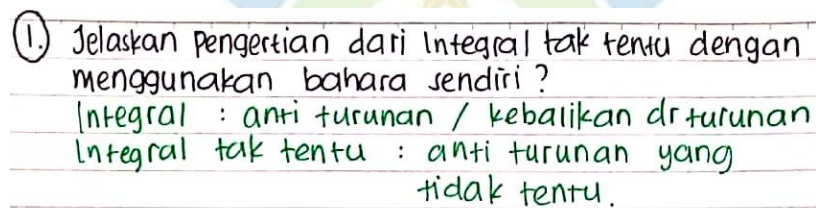 1. Jelaskan Pengertian dari Integral tak tentu dengan
menggunakan bahara sendiri?
Integral : anti turunan / kebalikan dr turunan
Integral tak tentu : anti turunan yang
tidak tentu.